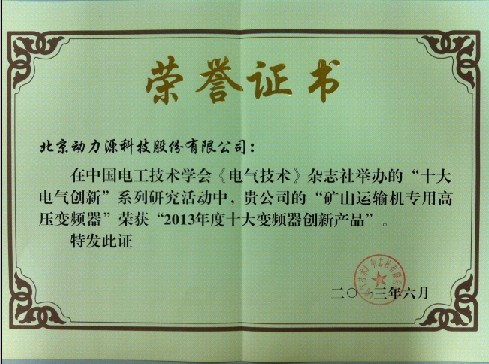 荣誉证书
北京动力源科技股份有限公司：
在中国电工技术学会《电气技术》杂志社举办的“十大
电气创新”系列研究活动中，贵公司的“矿山运输机专用高
压变频器”荣获“2013年度十大变频器创新产品”。
特发此证
二〇一三年六月